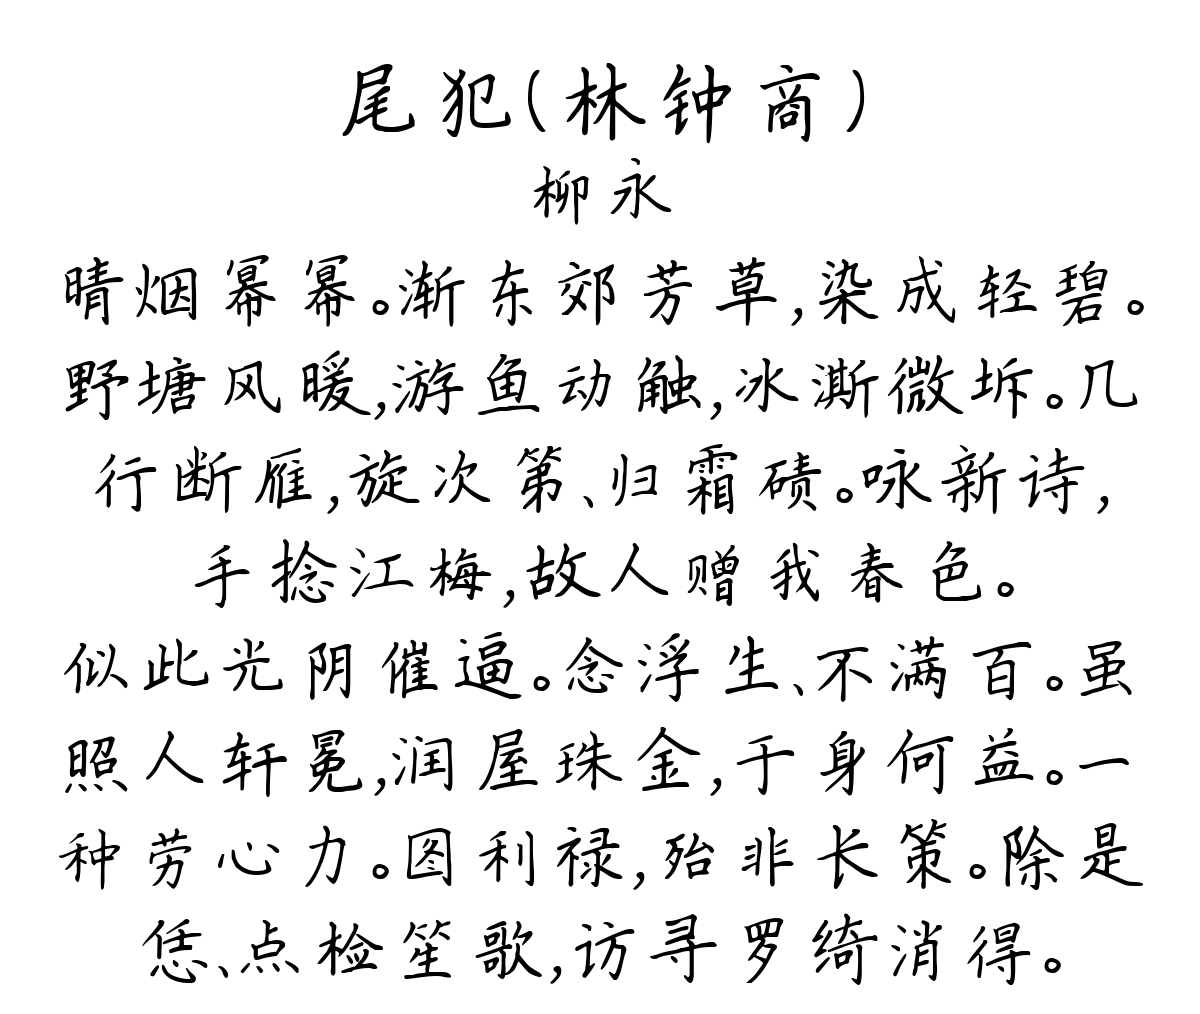 尾犯(林钟商)
柳永
晴烟幂幂。渐东郊芳草,染成轻碧。
野塘风暖,游鱼动触,冰澌微坼。几
行断雁,旋次第、归霜碛。咏新诗,
手捻江梅,故人赠我春色。
似此光阴催逼。念浮生、不满百。虽
照人轩冕,润屋珠金,于身何益。一
种劳心力。图利禄,殆非长策。除是
恁、点检笙歌,访寻罗绮消得。